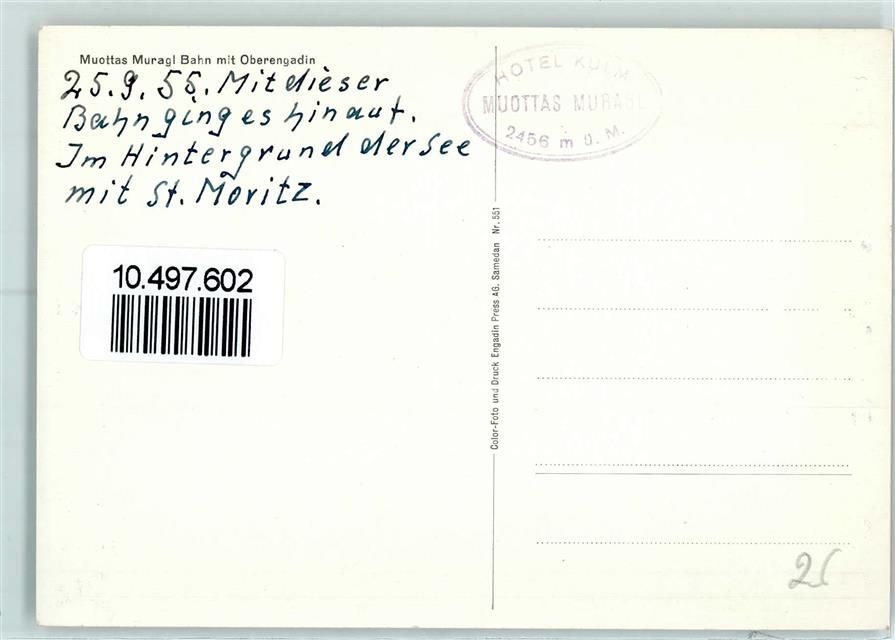 Muottas Muragl Bahn mit Oberengadin
25.9.55. Mit dieser
Bahn ging es hinauf.
Im Hintergrund der See
mit St. Moritz.
10.497.602
HOTEL KULM
MUOTTAS MURAGL
2456 m ü. M.
Color-Foto und Druck Engadin Press AG. Samedan Nr. 551